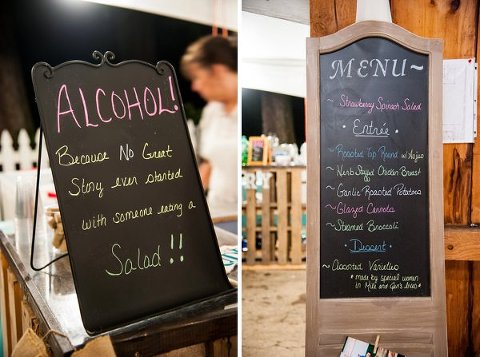 ALCOHOL!
Because No Great
Story ever started
with someone eating a
Salad!!
MENU~
~Strawberry Spinach Salad
Entrée
~Roasted Top Round w/Aujus
~Herb Stuffed Chicken Breast
~Garlic Roasted Potatoes
~Glazed Carrots
~Steamed Broccoli
Dessert
~Assorted Varieties
*made by special women
in Mike and Gen's lives*